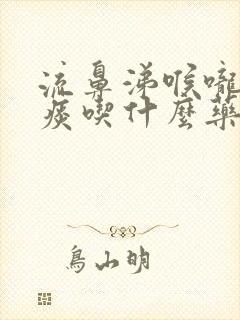 流鼻涕喉嚨
痰喫什麼藥
鳥山明